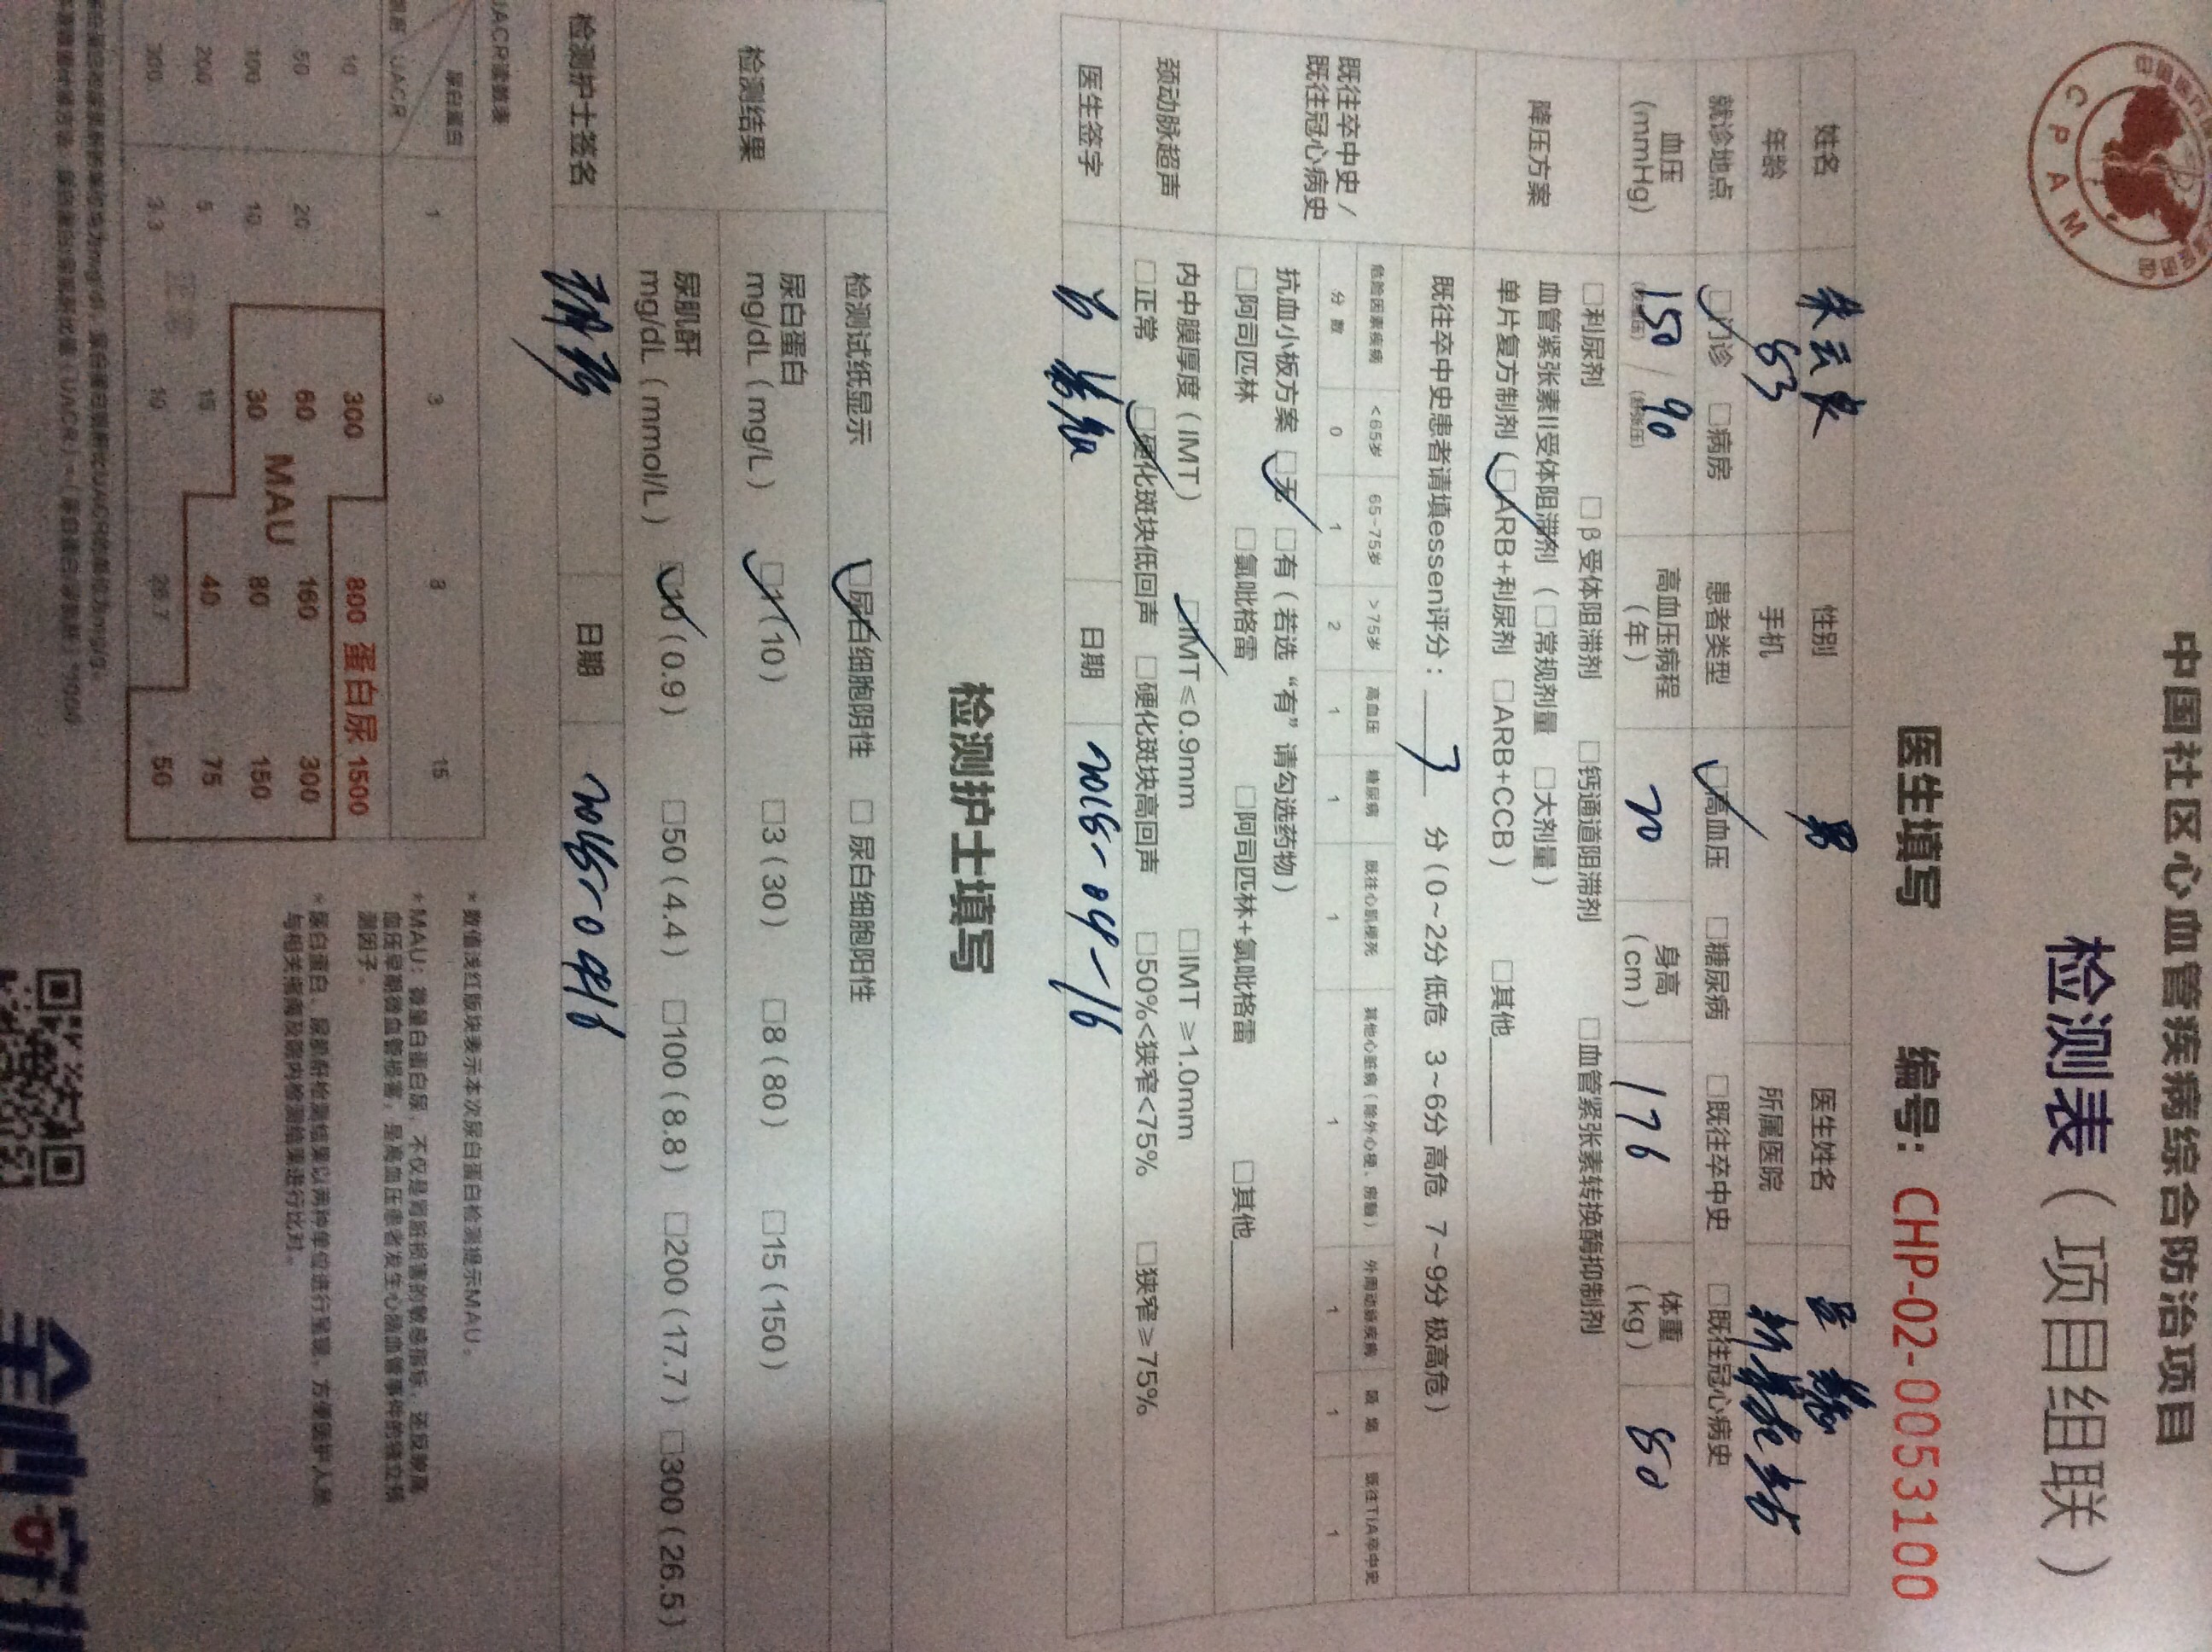 CPAM
中国社区心血管疾病综合防治项目
检测表（项目组联）
医生填写 编号：CHP-02-0053100
姓名 朱云良 性别 男 医生姓名 吕
年龄 83 手机 所属医院
就诊地点 □门诊 □病房 患者类型 □高血压 □糖尿病 □既往卒中史 □既往冠心病史
血压 (mmHg) 150 / 90 (收缩压) (舒张压) 高血压病程（年） 20 身高（cm） 176 体重（kg） 80
□利尿剂 □β受体阻滞剂 □钙通道阻滞剂 □血管紧张素转换酶抑制剂
降压方案 血管紧张素II受体阻滞剂（□常规剂量 □大剂量）
单片复方制剂（□ARB+利尿剂 □ARB+CCB） □其他
既往卒中史/既往冠心病史
既往卒中史患者请填essen评分： 3 分（0~2分 低危 3~6分 高危 7~9分 极高危）
危险因素疾病 <65岁 65-75岁 >75岁 高血压 糖尿病 既往心肌梗死 其他心脏病（除外心梗、房颤） 外周动脉疾病 吸烟 既往TIA卒中史
分数 0 1 2 1 1 1 1 1 1 1
抗血小板方案 □无 □有（若选“有”请勾选药物）
□阿司匹林 □氯吡格雷 □阿司匹林+氯吡格雷 □其他
颈动脉超声 内中膜厚度（IMT） □IMT≤0.9mm □IMT ≥1.0mm
□正常 □硬化斑块低回声 □硬化斑块高回声 □50%<狭窄<75% □狭窄≥75%
医生签字 吕 日期 2018-04-16
检测护士填写
检测结果
检测试纸显示 □尿白细胞阴性 □ 尿白细胞阳性
尿白蛋白 mg/dL（mg/L） □1（10） □3（30） □8（80） □15（150）
尿肌酐 mg/dL（mmol/L） □10（0.9） □50（4.4） □100（8.8） □200（17.7） □300（26.5）
检测护士签名 日期 2018-0416
UACR读数表
尿白蛋白 1 3 8 15
肌酐 UACR
10 300 800 蛋白尿 1500
50 20 60 160 300
MAU
100 10 30 80 150
200 5 15 40 75
正常
300 3.3 10 26.7 50
*数值浅红版块表示本次尿白蛋白检测提示MAU。
*MAU：微量白蛋白尿，不仅是肾脏损害的敏感指标，还反映高
血压早期微血管损害，是高血压患者发生心脑血管事件的独立预
测因子。
*尿白蛋白、尿肌酐检测结果以两种单位进行呈现，方便医护人员
与相关指南及院内检测结果进行比对。
尿白蛋白和尿肌酐的单位均为mg/dl，尿白蛋白肌酐比UACR的单位为mg/g。
计算方法：尿白蛋白/尿肌酐比值（UACR）=（尿白蛋白/尿肌酐）*1000
全心